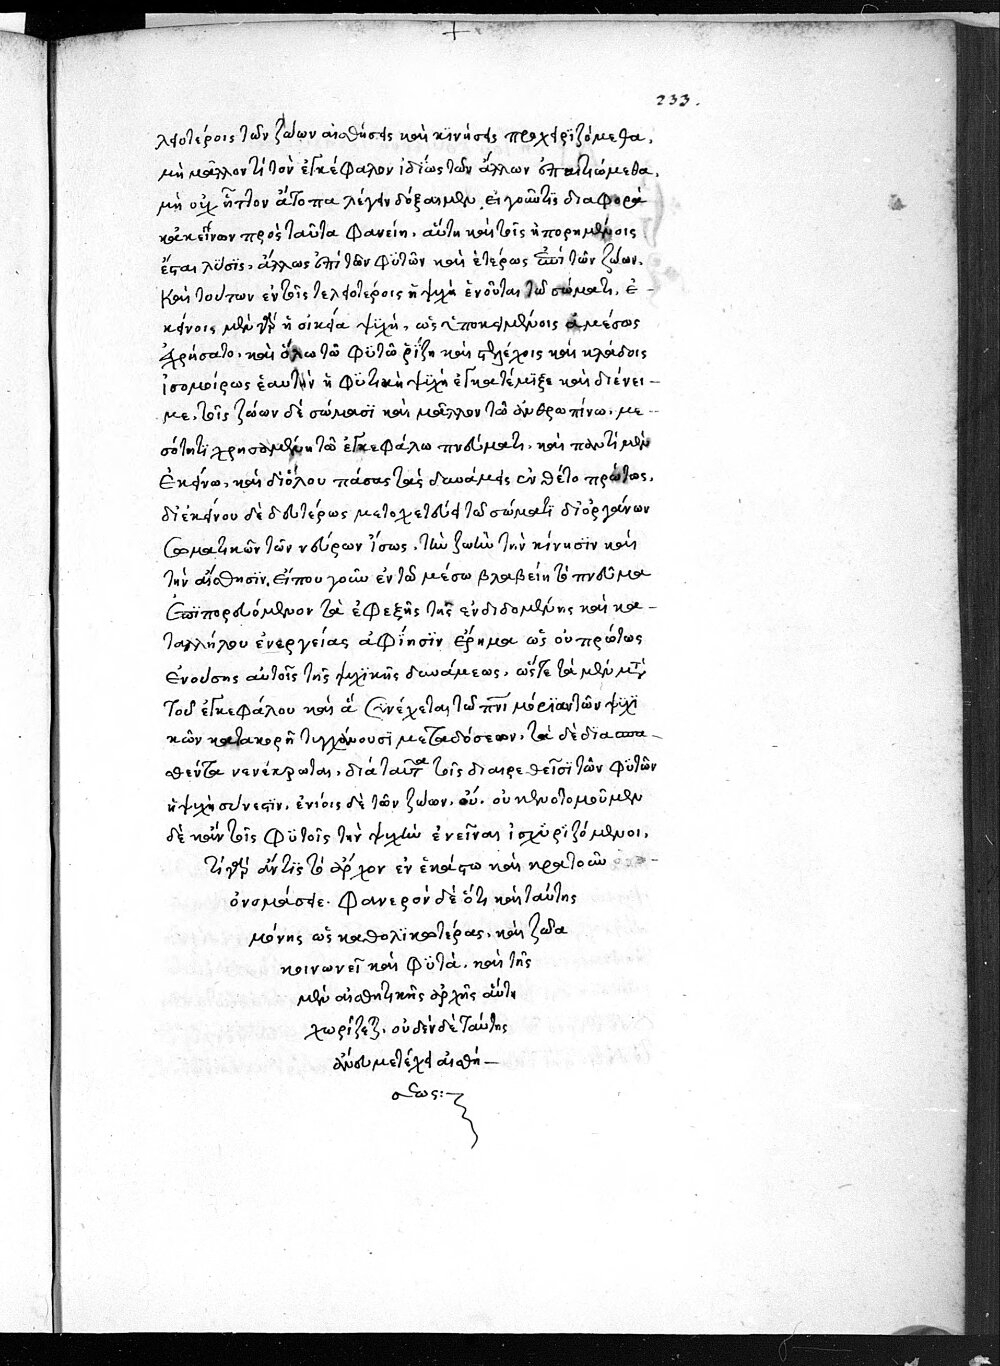 233.
λειοτέροις τῶν ζώων αἰσθήσεις καὶ κινήσεις προχειριζόμεθα.
μὴ μᾶλλόν τι τὸν ἐγκέφαλον ἰδίως τῶν ἄλλων ὑπαιτιώμεθα,
μὴ οὐχ ἧττον ἄτοπα λέγειν δόξαιμεν. εἰ γοῦν τις διαφορὰ
κἀκείνων πρὸς ταῦτα φανείη, αὕτη καὶ τοῖς ἠπορημένοις
ἔσται λύσις. ἄλλως ἐπὶ τῶν φυτῶν καὶ ἑτέρως ἐπὶ τῶν ζώων.
καὶ τούτων ἐν τοῖς τελειοτέροις ἡ ψυχὴ ἑνοῦται τῷ σώματι. ἐ-
κείνοις μὲν γὰρ ἡ οἰκεία ψυχὴ, ὡς ὑποκειμένοις ἀμέσως
ἐχρήσατο. καὶ ὅλῳ τῷ φυτῷ ῥίζῃ καὶ στελέχοις καὶ κλάδοις
ἰσομοίρως ἑαυτὴν ἡ φυτικὴ ψυχὴ ἐγκατέμιξε καὶ διένει-
με. τοῖς ζώων δὲ σώμασι καὶ μᾶλλον τῷ ἀνθρωπίνῳ. με-
σότητι χρησαμένη τῷ ἐγκεφάλῳ πνεύματι. καὶ παντὶ μὲν
ἐκείνῳ. καὶ δι' ὅλου πάσας τὰς δυνάμεις ἐνέθετο πρώτως.
δι' ἐκείνου δὲ δευτέρως μετοχετεύει τῷ σώματι δι' ὀργάνων
σωματικῶν τῶν νεύρων ἴσως. τὴν ζωὴν τὴν κίνησιν καὶ
τὴν αἴσθησιν. εἴ που γοῦν ἐν τῷ μέσῳ βλαβείη τὸ πνεῦμα
ἐπιπορευόμενον τὰ ἐφεξῆς τῆς ἐνδιδομένης καὶ κα-
ταλλήλου ἐνεργείας ἀφίησιν ἔρημα ὡς οὐ πρώτως
ἐνούσης αὐτοῖς τῆς ψυχικῆς δυνάμεως. ὥστε τὰ μὲν μετὰ
τοῦ ἐγκεφάλου καὶ ἃ συνέχεται τῷ πνι μόρια τῶν ψυχι
κῶν κατακορῆ τυγχάνουσι μεταδόσεων. τὰ δὲ διασπα-
σθέντα νενέκρωται. διὰ ταῦτα τοῖς διαιρεθεῖσι τῶν φυτῶν
ἡ ψυχὴ σύνεστιν. ἐνίοις δὲ τῶν ζώων, οὔ. οὐ καινοτομοῦμεν
δὲ κἂν τοῖς φυτοῖς τὴν ψυχὴν ἐνεῖναι ἰσχυριζόμενοι.
τί γὰρ ἄν τις τὸ ἄρχον ἐν ἑκάστῳ καὶ κρατοῦν
ὀνομάσειε. φανερὸν δὲ ὅτι καὶ ταύτης
μόνης ὡς καθολικωτέρας. καὶ ζῶα
κοινωνεῖ καὶ φυτά. καὶ τῆς
μὲν αἰσθητικῆς ἀρχῆς αὕτη
χωρίζεται. οὐδὲν δὲ ταύτης
ἄνευ μετέχει αἰσθή-
σεως: